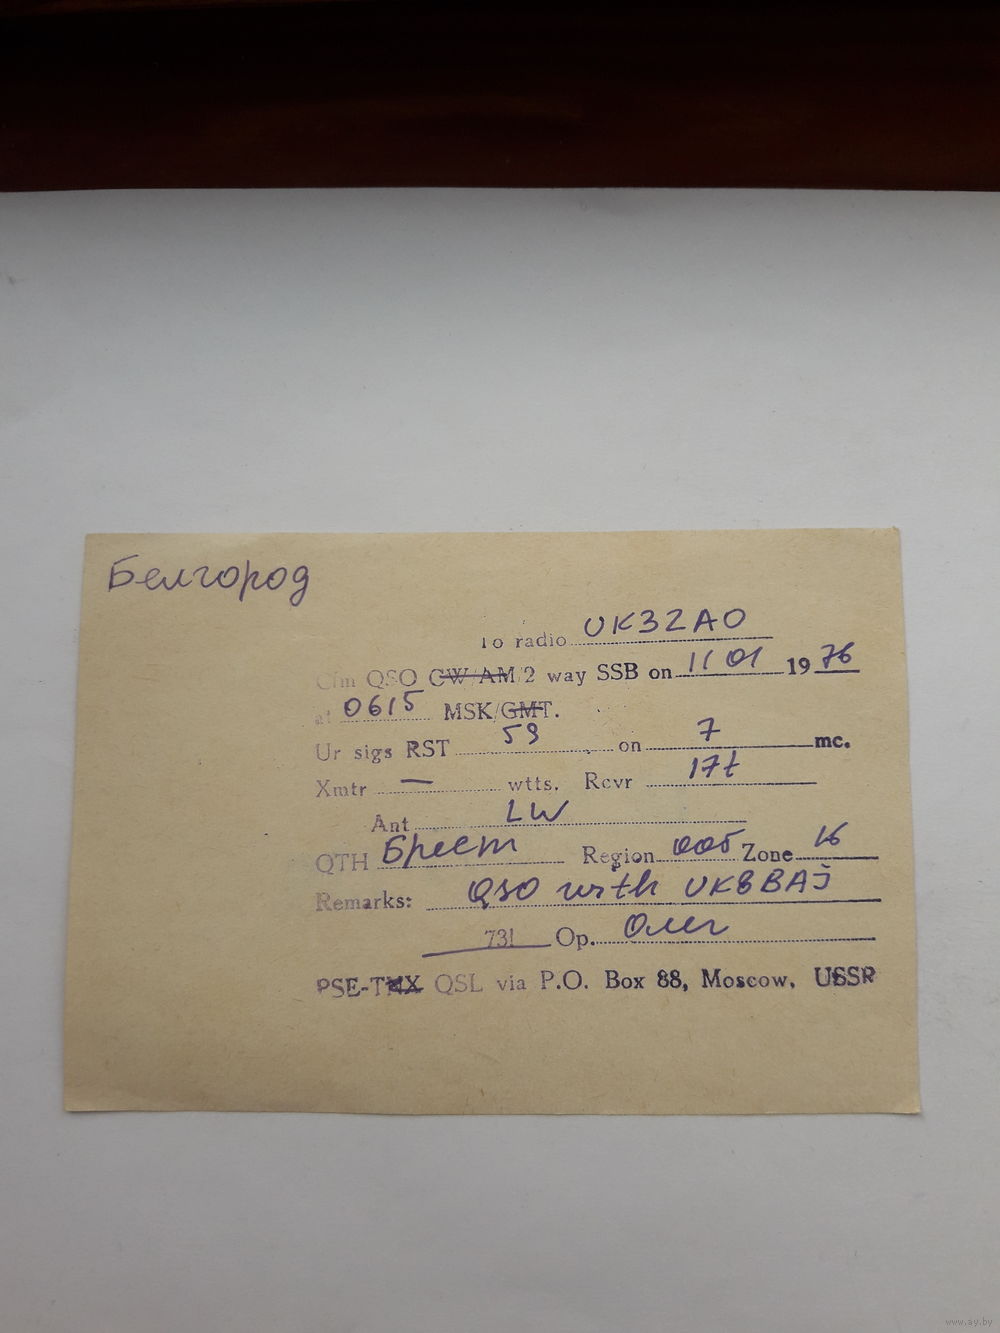 Белгород
To radio UK3ZAO
Cfm QSO CW/AM/2 way SSB on 11 01 1976
at 0615 MSK/GMT.
Ur sigs RST 59 on 7 mc.
Xmtr — wtts. Rcvr 17t
Ant LW
QTH Брест Region 005 Zone 16
Remarks: QSO with UK8BAJ
73! Op. Олег
PSE-TNX QSL via P.O. Box 88, Moscow, USSR
www.ay.by